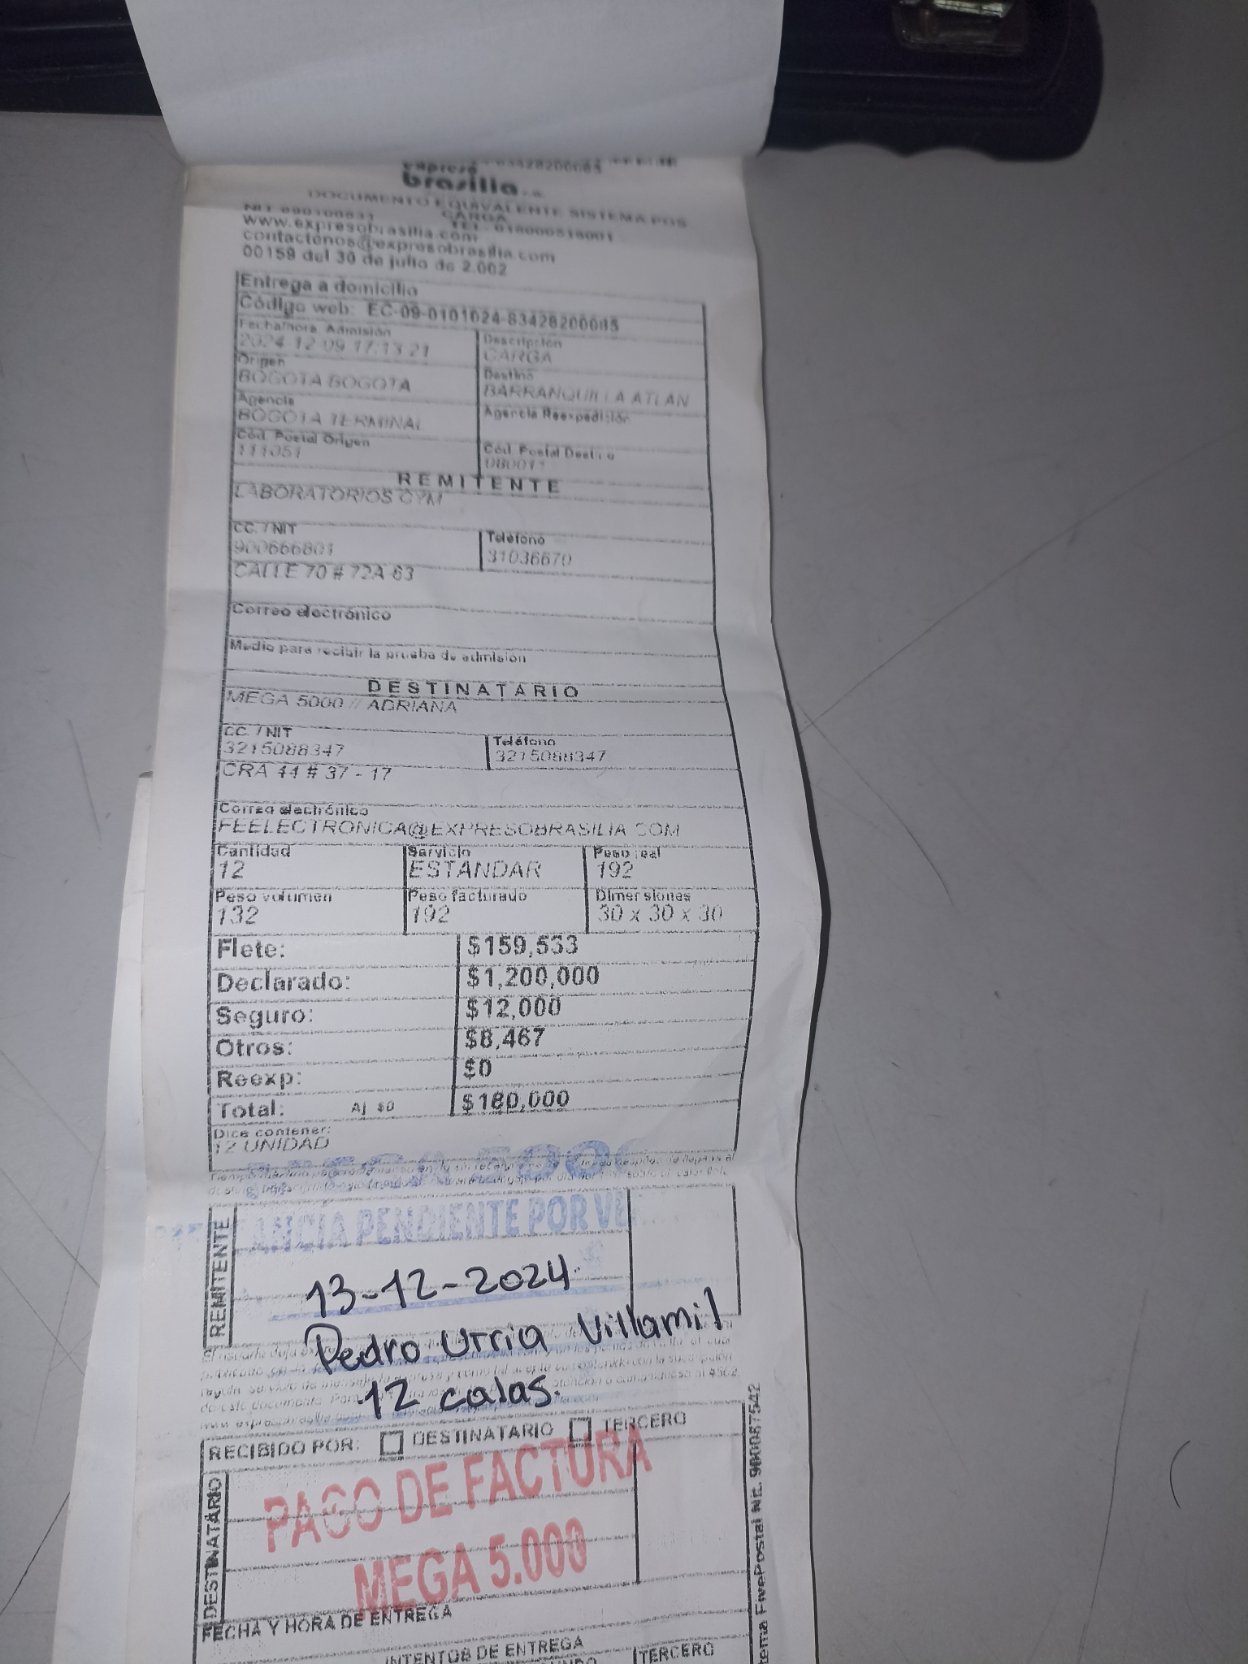 expreso
brasilia s.a.
DOCUMENTO EQUIVALENTE SISTEMA POS
CARGA
NIT 890100531 TEL: 018000518001
www.expresobrasilia.com
contactenos@expresobrasilia.com
00159 del 30 de julio de 2.002
Entrega a domicilio
Código web: EC-09-0101024-83428200085
Fecha/hora Admisión Descripción
2024-12-09 17:13:21 CARGA
Origen Destino
BOGOTA BOGOTA BARRANQUILLA ATLAN
Agencia Agencia Reexpedición
BOGOTA TERMINAL
Cód. Postal Origen Cód. Postal Destino
111051 080011
REMITENTE
LABORATORIOS GYM
CC. / NIT Teléfono
900666801 31036670
CALLE 70 # 72A 63
Correo electrónico
Medio para recibir la prueba de admisión
DESTINATARIO
MEGA 5000 // ADRIANA
CC. / NIT Teléfono
3215088347 3215088347
CRA 44 # 37 - 17
Correo electrónico
FEELECTRONICA@EXPRESOBRASILIA.COM
Cantidad Servicio Peso real
12 ESTANDAR 192
Peso volumen Peso facturado Dimensiones
132 192 30 x 30 x 30
Flete: $159,533
Declarado: $1,200,000
Seguro: $12,000
Otros: $8,467
Reexp: $0
Total: Aj $0 $180,000
Dice contener:
12 UNIDAD
PENDIENTE POR
REMITENTE
13-12-2024
Pedro Utria Villamil
12 cajas.
RECIBIDO POR: DESTINATARIO TERCERO
DESTINATARIO
PAGO DE FACTURA
MEGA 5.000
FECHA Y HORA DE ENTREGA
INTENTOS DE ENTREGA
TERCERO
FivePostal Nit. 900087542